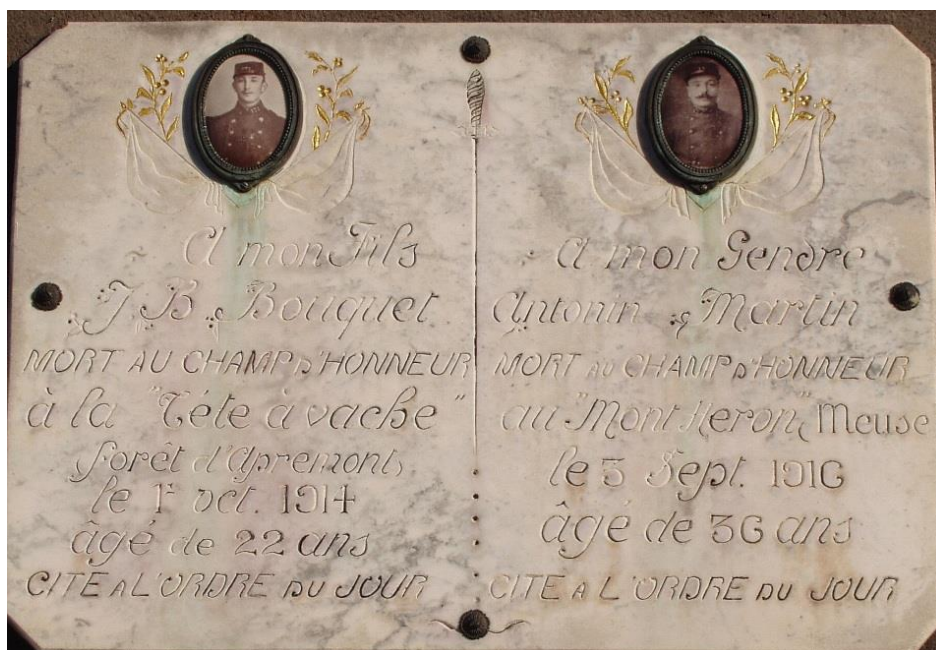 A mon Fils
J. B. Bouquet
MORT AU CHAMP D'HONNEUR
à la "Téte à vache"
forêt d'Apremont,
le 1r oct. 1914
âgé de 22 ans
CITE A L'ORDRE DU JOUR
A mon Gendre
Antonin Martin
MORT AU CHAMP D'HONNEUR
au "Mont Heron", Meuse
le 3 Sept. 1916
âgé de 36 ans
CITE A L'ORDRE DU JOUR